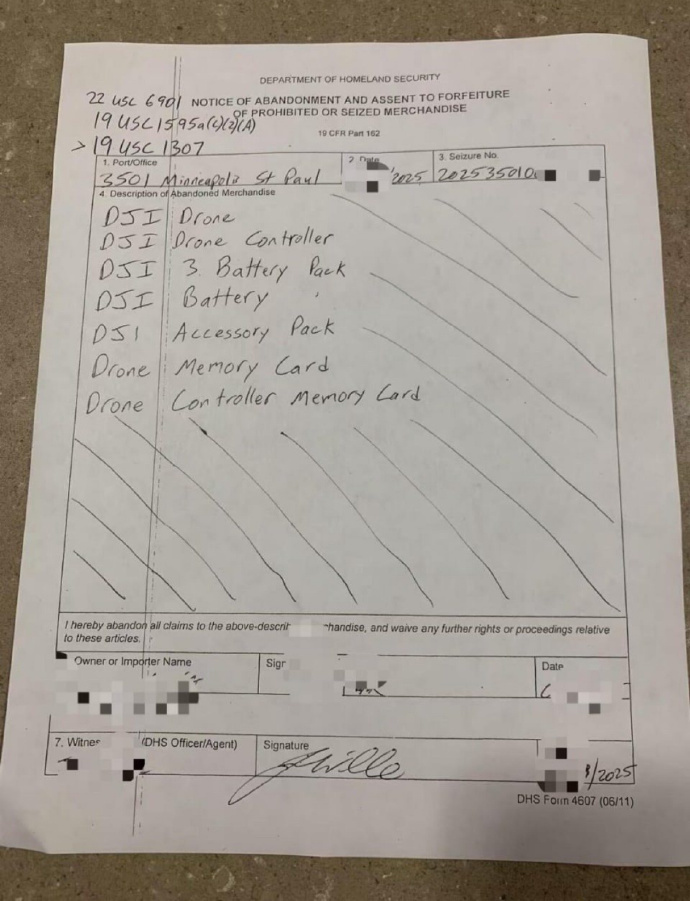 DEPARTMENT OF HOMELAND SECURITY
22 USC 6901 NOTICE OF ABANDONMENT AND ASSENT TO FORFEITURE
19 USC 1595a(c)(2)(A) OF PROHIBITED OR SEIZED MERCHANDISE
> 19 USC 1307 19 CFR Part 162
1. Port/Office 2. Date 3. Seizure No.
3501 Minneapolis St Paul /2025 202535010
4. Description of Abandoned Merchandise
DJI Drone
DJI Drone Controller
DJI 3 Battery Pack
DJI Battery
DJI Accessory Pack
Drone Memory Card
Drone Controller Memory Card
I hereby abandon all claims to the merchandise, and waive any further rights or proceedings relative
to these articles.
Owner or Importer Name Date
7. (DHS Officer/Agent) Signature
/2025
DHS Form 4607 (06/11)